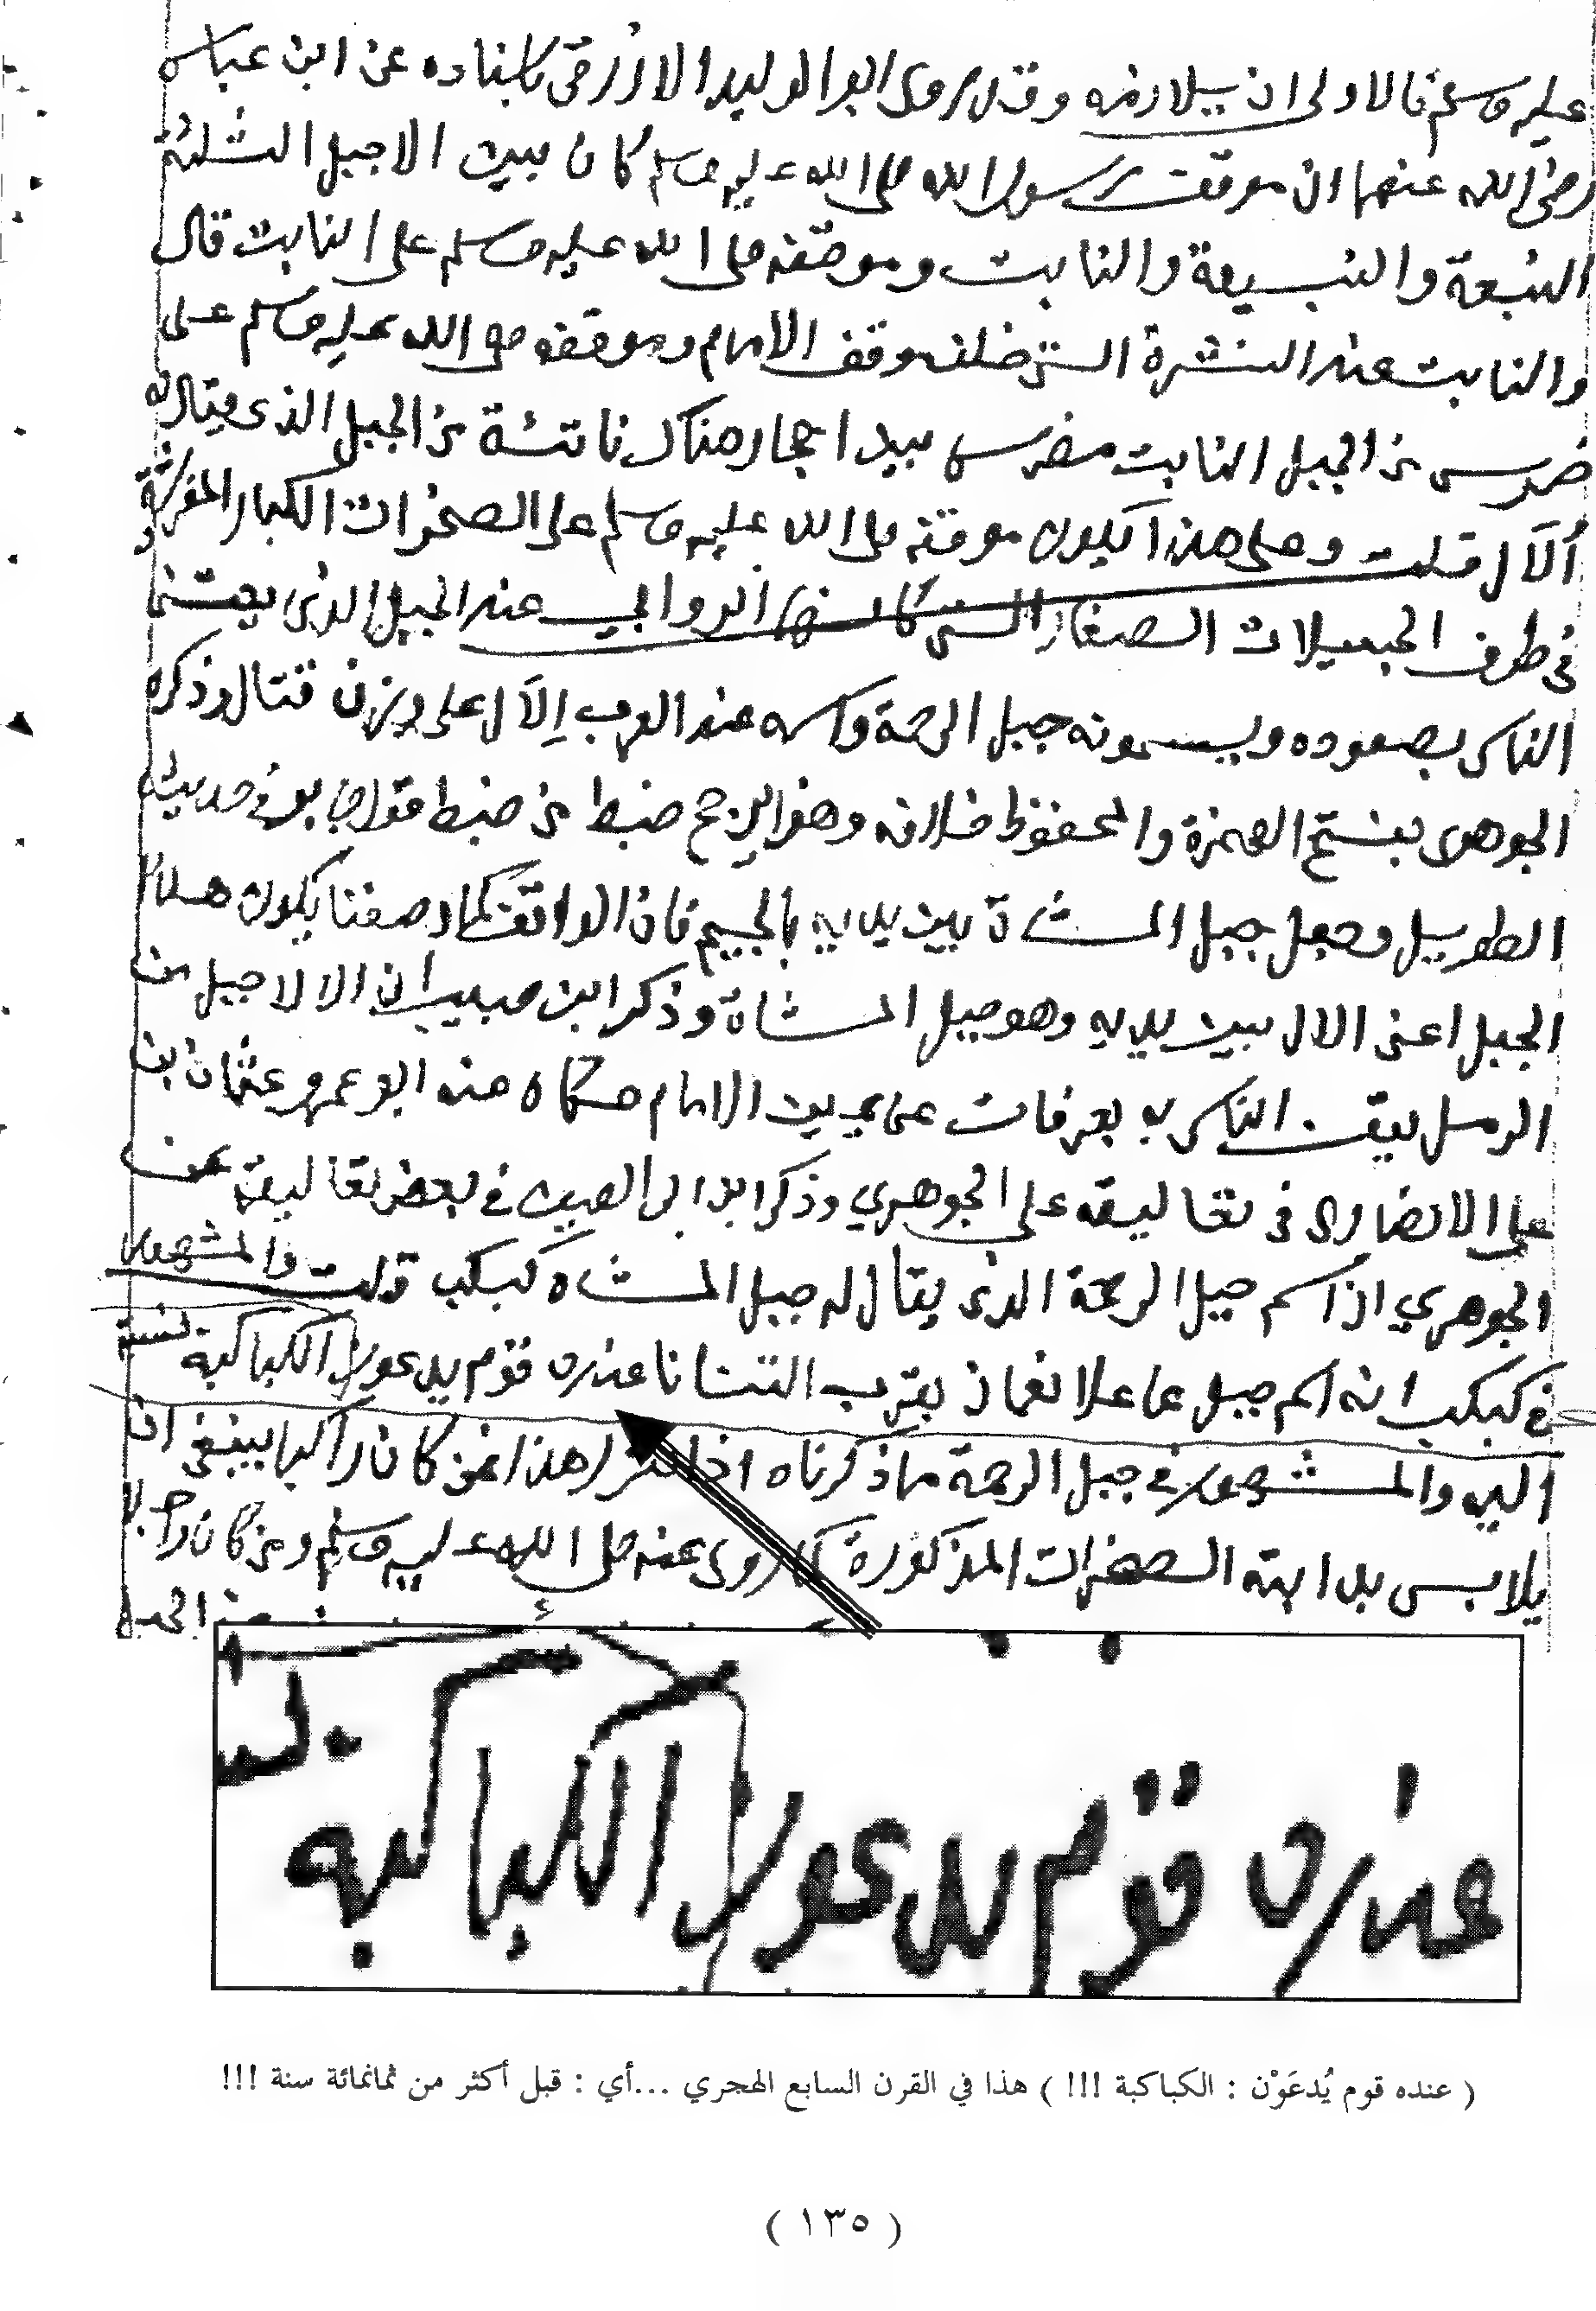 عليه وسلم فالاولى ان يلازمه وقد روى ابو الوليد الازرقي باسناده عن ابن عباس
رضى الله عنهما ان موقف رسول الله صلى الله عليه وسلم كان بين الاجبل الثلثة
النبعة والنبيعة والنابت وموقفه صلى الله عليه وسلم على النابت قال
والنابت عند النشرة التي خلف موقف الامام وموقفه صلى الله عليه وسلم على
ضرس من الجبل النابت مضرس بين احجار هناك ناتئة من الجبل الذي يقال له
ألال قلت وعلى هذا يكون موقفه صلى الله عليه وسلم على الصخرات الكبار المفترشة
في طرف الجبيلات الصغار التي كانها الروابي عند الجبل الذي يعتني
الناس بصعوده ويسمونه جبل الرحمة واسمه عند العرب إلال على وزن فعال وذكره
الجوهرى بفتح الهمزة والمحفوظ خلافه وهذا يرجح ضبط من ضبط قوله في حديث
الطويل وجعل جبل المشاة بين يديه بالجيم فان الواقف كما وصفنا يكون هذا
الجبل اعنى الالال بين يديه وهو جبل المشاة وذكر ابن حبيب ان الالال جبل من
الرمل يقف الناس به بعرفات عن يمين الامام حكاه عنه ابو عمرو عثمان ابن
على الانصارى في تعاليقه على الجوهري وذكر ابن ابى الصيف في بعض تعاليقه عن
الجوهري ان اسم جبل الرحمة الذى يقال له جبل المشاه كبكب قلت والمشهور
في كبكب انه اسم جبل عا علا نعمان بقرب الثنايا عنده قوم يدعون الكباكبة نسبة
اليه والمشهور في جبل الرحمة ما ذكرناه اذا تقرر هذا فمن كان راكبا ينبغى ان
يلابس بدابته الصخرات المذكورة كما روى عنه صلى الله عليه وسلم ومن كان راجلا
عنده قوم يدعون الكباكبة
( عنده قوم يُدعَوْن : الكباكبة !!! ) هذا في القرن السابع الهجري ...أي : قبل أكثر من ثمانمائة سنة !!!
( ١٣٥ )